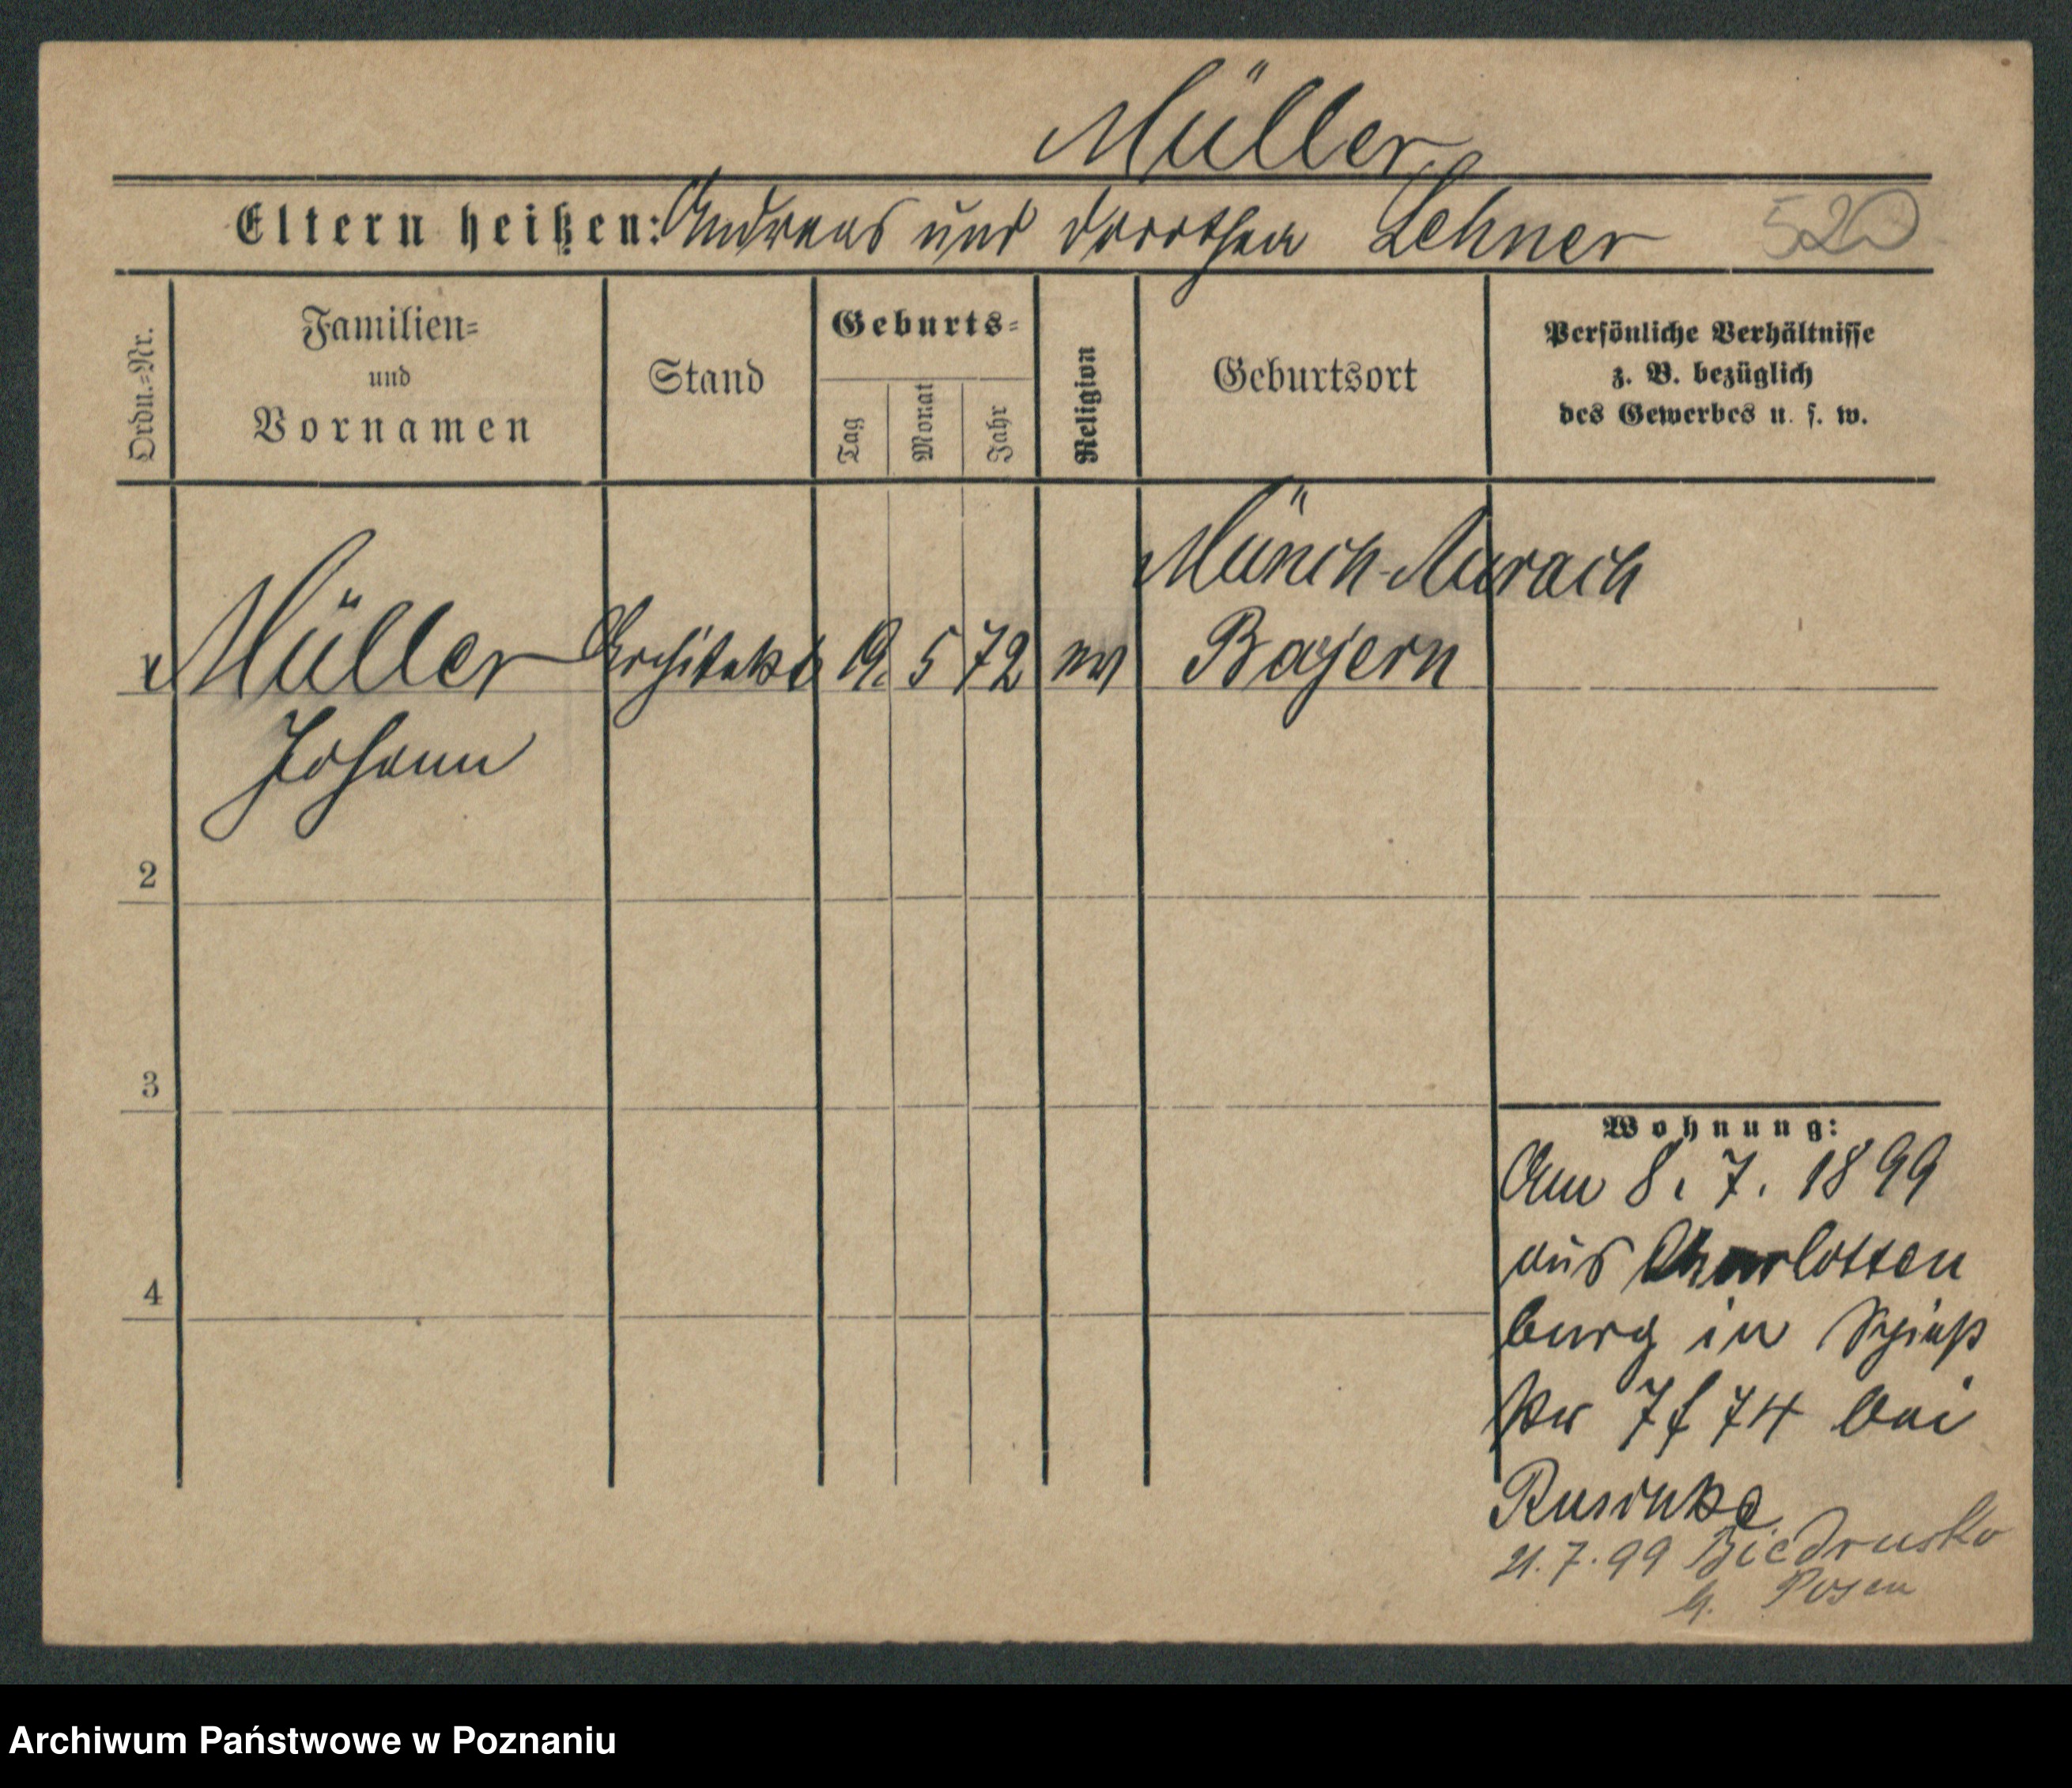 Müller
Eltern heißen: Andreas und Dorothea Lehner 520
Ordn.=Nr.
Familien=
und
Vornamen
Stand
Geburts=
Tag
Monat
Jahr
Religion
Geburtsort
Persönliche Verhältnisse
z. B. bezüglich
des Gewerbes u. s. w.
Münch-Aurach
Müller Architekt 19. 5 72 ev Bayern
Johann
2
3
4
Wohnung:
Am 8. 7. 1899
aus Charlotten
burg in
74 bei
21.7.99 Biedrusko
Posen
Archiwum Państwowe w Poznaniu